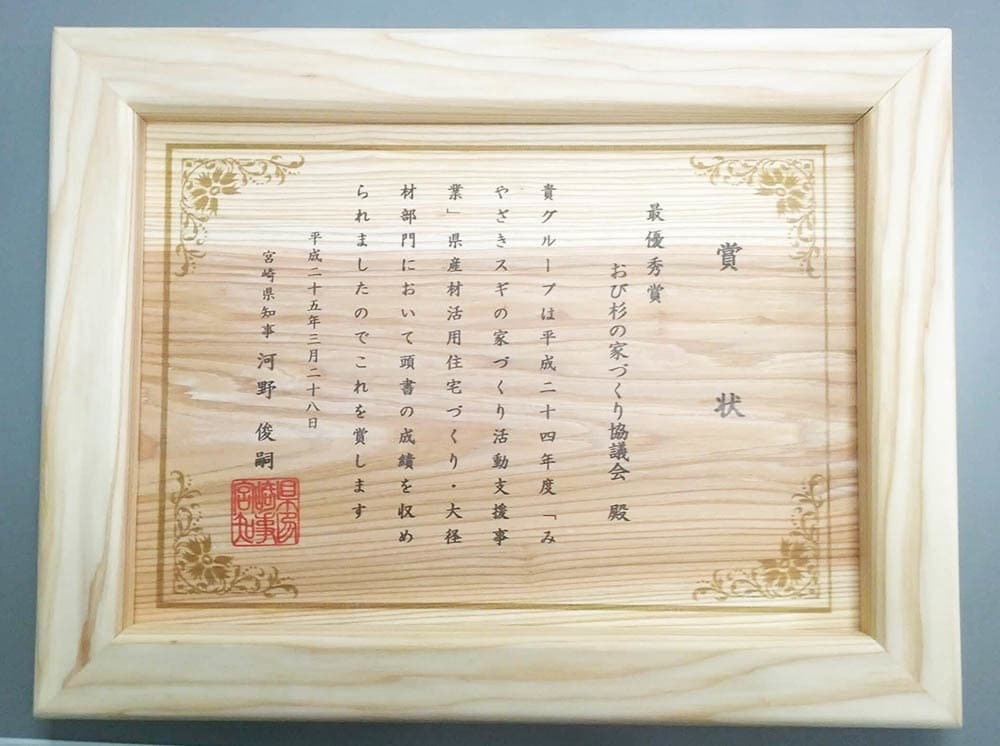 賞状
最優秀賞
おび杉の家づくり協議会 殿
貴グループは平成二十四年度「み
やざきスギの家づくり活動支援事
業」県産材活用住宅づくり・大径
材部門において頭書の成績を収め
られましたのでこれを賞します
平成二十五年三月二十八日
宮崎県知事 河野 俊嗣